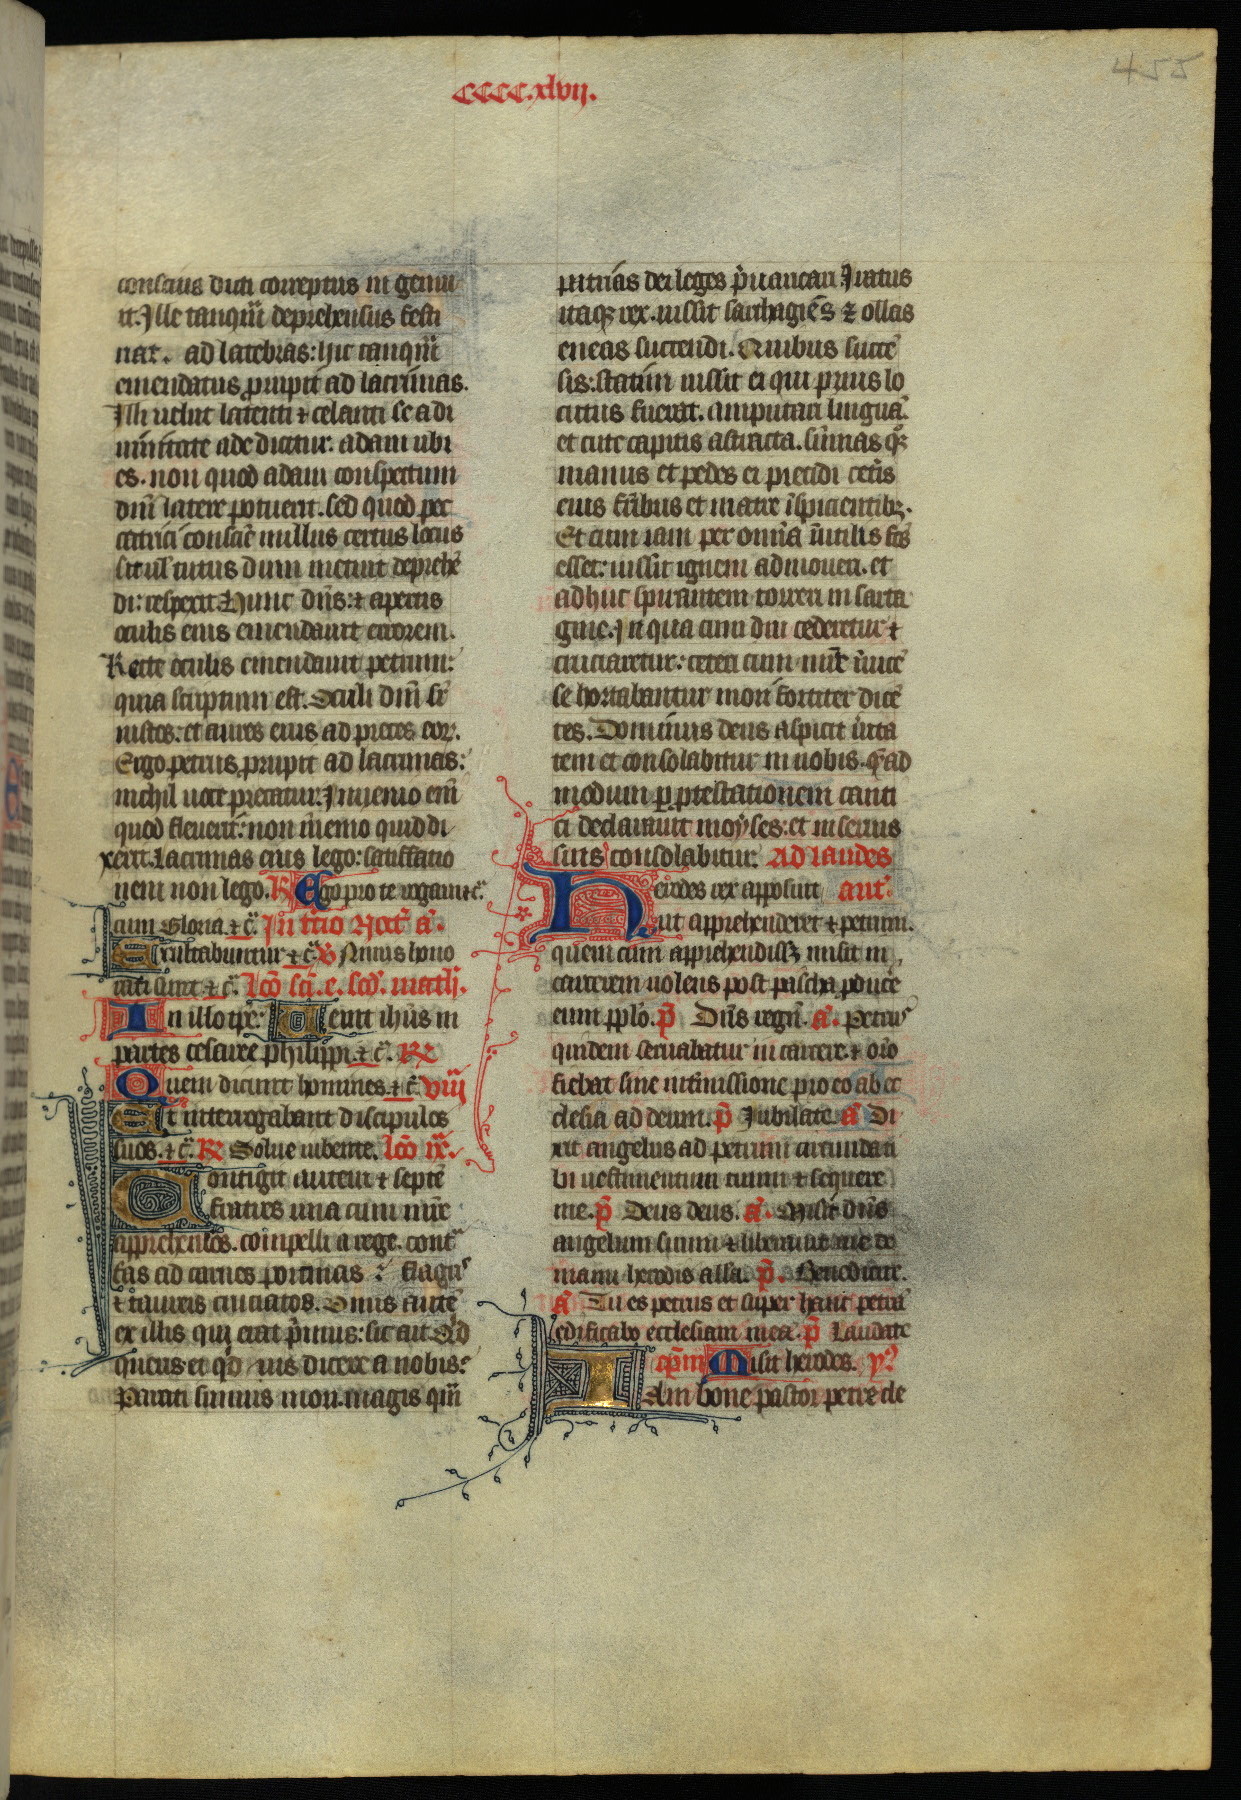 cccc.xlvij.
455
conscius dicti correptus in gemu
it. Ille tanqm̄ deprehensus festi
nat. ad latebras: hic tanqm̄
emendatus prupit ad lacrimas.
Illi uelut latenti ⁊ celanti se a di
uinitate ade dicitur. adam ubi
es. non quod adam conspectum
dn̄i latere potuerit. sed quod pec
catrici consciē nullus certus locus
sit ul' tutus dum metuit deprehē
di: respexit Hunc dn̄s: ⁊ apertis
oculis eius emendauit errorem.
Recte oculis emendauit petrum:
quia scriptum est. Oculi dn̄i sr̄
iustos: et aures eius ad preces eor̄.
Ergo petrus prupit ad lacrimas:
nichil uoce precatur. Inuenio em̄
quod fleuerit: non inuenio quid di
xerit. Lacrimas eius lego: satisfactio
nem non lego. R Ego pro te rogaui ⁊ c̄.
cum Gloria ⁊ c̄. In tcio Noct̄ a.
Exultabuntur ⁊ c̄ V Nimis hono
rati sunt ⁊ c̄. Lcō scī. e. scd̄. math.
In illo tpr̄: Uenit ihūs in
partes cesaree philippi. ⁊ c̄. R
Quem dicunt homines ⁊ c̄ viij
Et interrogabant discipulos
suos. ⁊ c̄. R Solue iubente. lcō ix.
Contigit autem ⁊ septē
fratres una cum mr̄e
apprehensos. compelli a rege. cont
fas ad carnes porcinas : flagis
⁊ taureis cruciatos. Unus autē
ex illis qui erat prīmus: sic ait Qd
queris et qd uis dicere a nobis:
Parati sumus mori. magis qm̄
patrias dei leges p̄uaricari. Iratus
itaq; rex. iussit sarthagiēs ⁊ ollas
eneas succendi. Quibus succē
sis: statim iussit ei qui prius lo
cutus fuerat. amputari linguā.
et cute capitis abstracta. sūmas q̄
manus et pedes ei precidi cetīs
eius frībus et matre īspicientib;.
Et cum iam per omīa inutilis fcs
esset: iussit ignem admoueri. et
adhuc spirantem torreri in sarta
gine. In qua cum diu cederetur ⁊
cruciaretur: ceteri cum mr̄e iuicē
se hortabantur mori fortiter dicē
tes. Dominus deus aspiciet uirta
tem et consolabitur in uobis. qad
modum p̄ ptestationem canti
ci declarauit moyses: et in seruis
suis consolabitur. Ad laudes
Herodes rex apposuit ant̄.
ut apprehenderet ⁊ petrum.
quem cum apprehendiss; misit in
carcerem uolens post pascha pducē
eum pplo. p̄ Dn̄s regn̄. a. Petrus
quidem seruabatur in carcere. ⁊ or̄o
fiebat sine intmissione pro eo ab ec
clesia ad deum. p̄ Iubilate a Di
xit angelus ad petrum circumda ti
bi uestimentum tuum ⁊ sequere
me. p̄ Deus deus. a. Misit dn̄s
angelum suum ⁊ liberauit me de
manu herodis alla. p̄. Benedicite.
a Tu es petrus et super hanc petrā
edificabo ecclesiam mea. p̄ Laudate
cpm̄ Misit herodes. y
IAm bone pastor petre cle